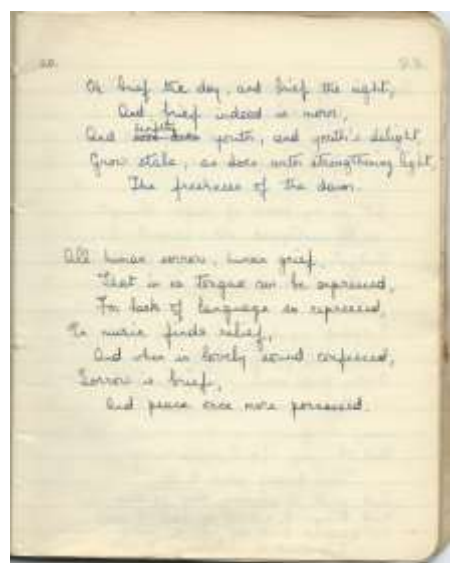 20.
Oh brief the day, and brief the night,
And brief indeed is morn,
And youth, and youth's delight
Grow stale, as does with strengthening light,
The freshness of the dawn.
All human sorrow, human grief,
That in no tongue can be expressed,
For lack of language so repressed,
In music finds relief,
And when in lovely sound confessed,
Sorrow is brief,
And peace once more possessed.